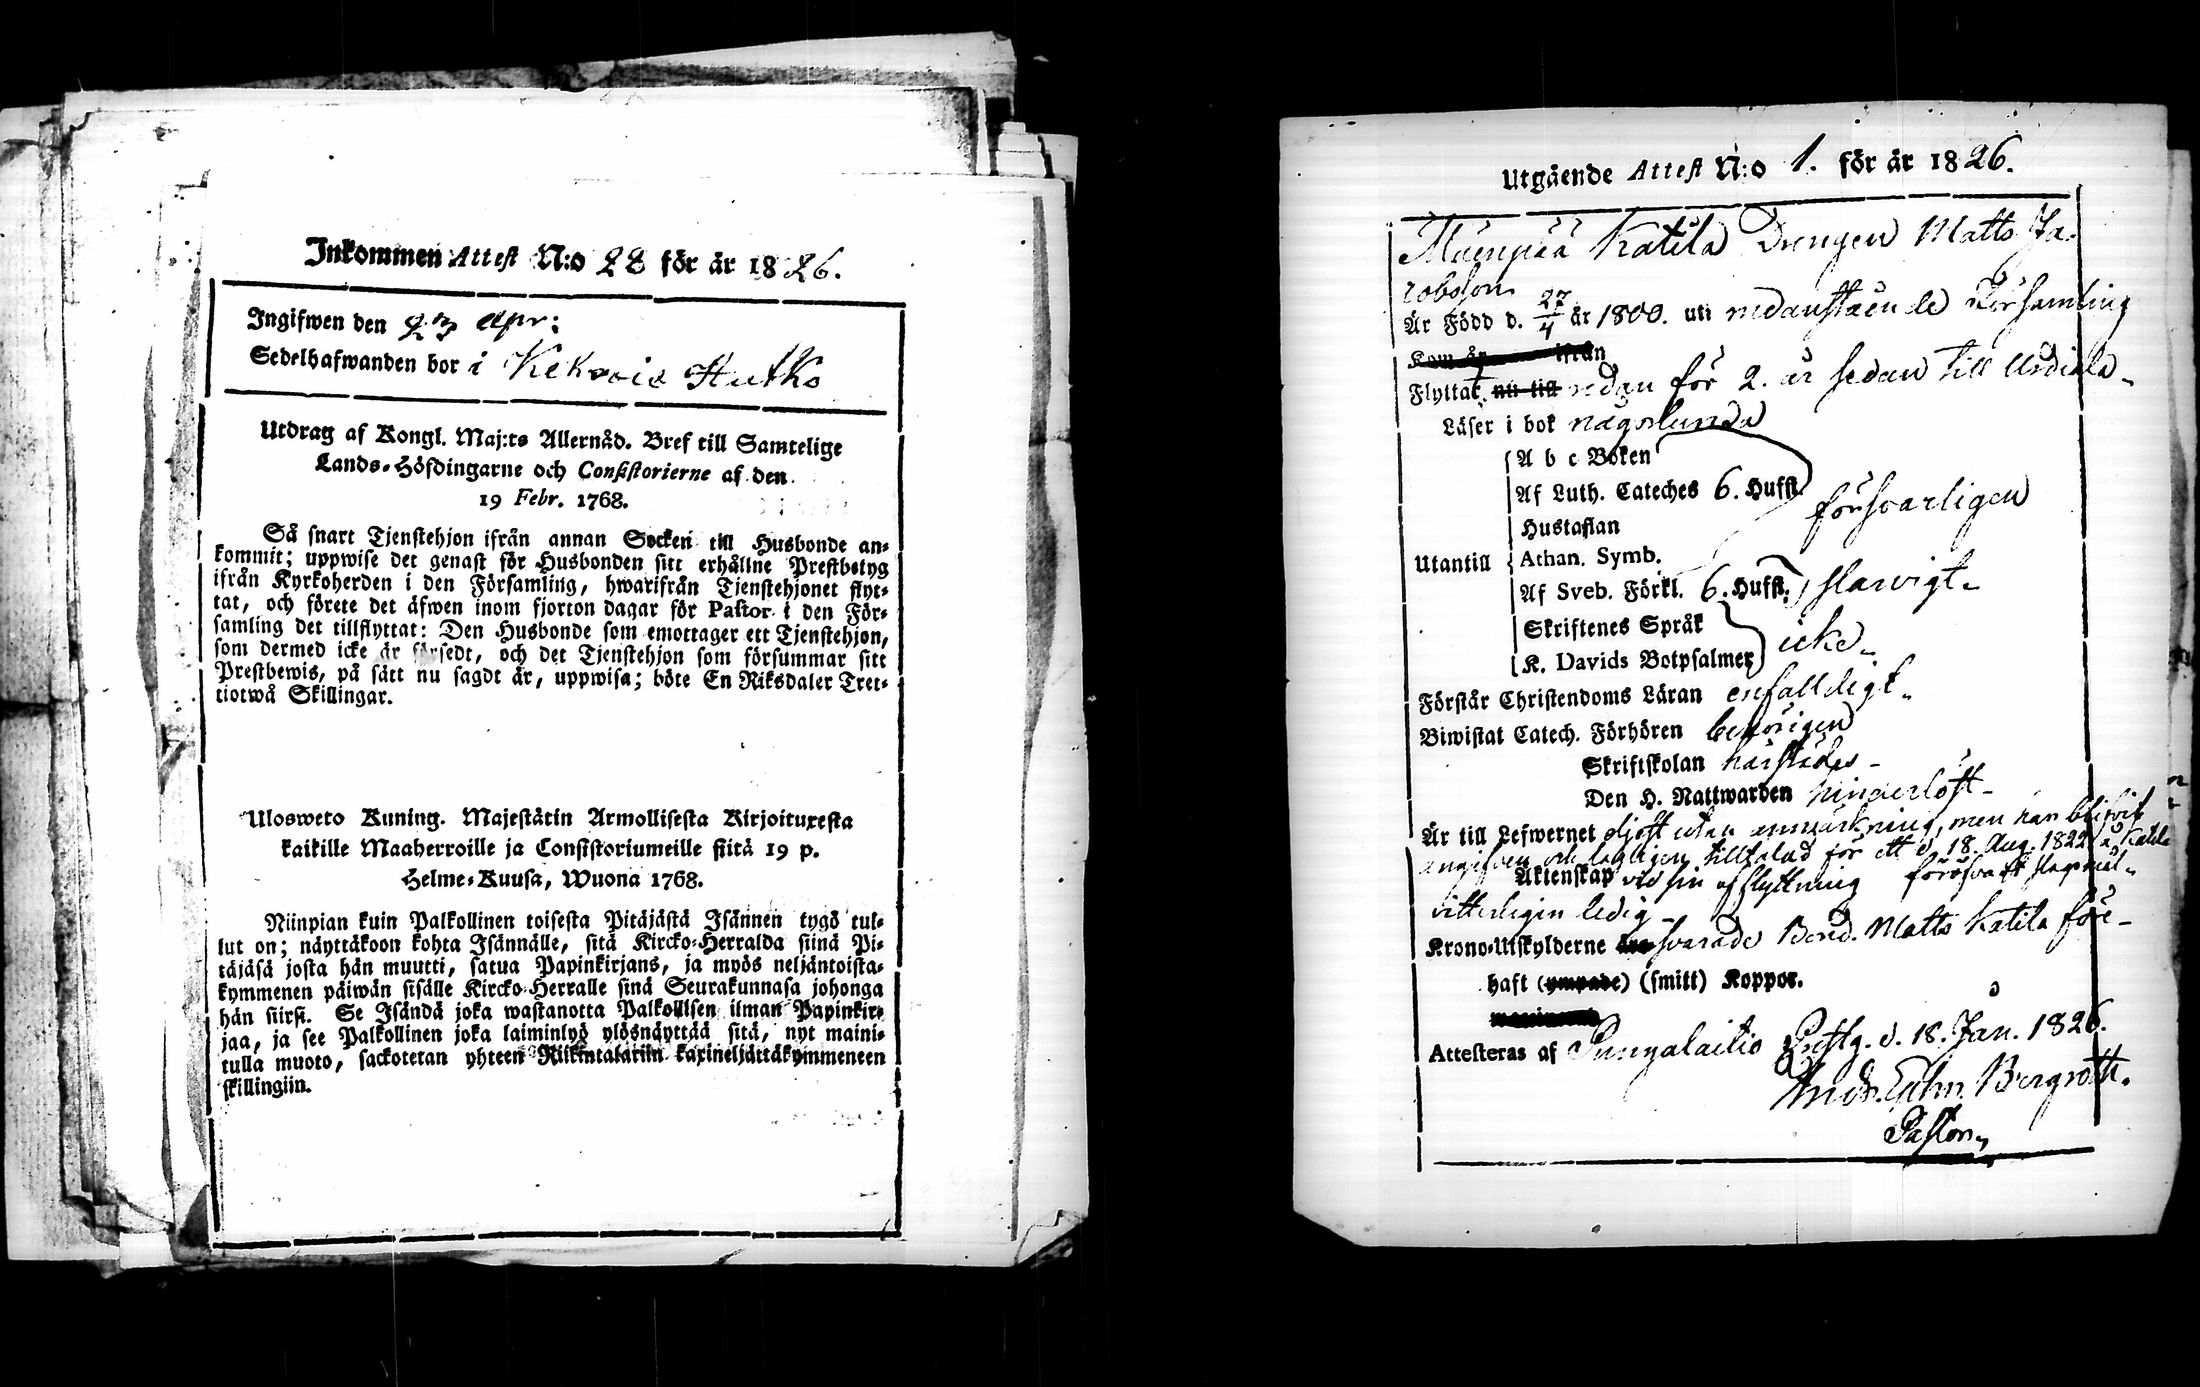 Inkommen Attest N:o 28 för år 1826.
Ingifwen den 23 Apr:
Sedelhafwanden bor i Kekois Hutko
Utdrag af Kongl. Maj:ts Allernåd. Bref till Samtelige
Lands-Höfdingarne och Consistorierne af den
19 Febr. 1768.
Så snart Tjenstehjon ifrån annan Socken till Husbonde an-
kommit; uppwise det genast för Husbonden sitt erhållne Prestbetyg
ifrån Kyrkoherden i den Församling, hwarifrån Tjenstehjonet flyt-
tat, och förete det äfwen inom fjorton dagar för Pastor i den För-
samling det tillflyttat: Den Husbonde som emottager ett Tjenstehjon,
som dermed icke är försedt, och det Tjenstehjon som försummar sitt
Prestbewis, på sätt nu sagdt är, uppwisa; böte En Riksdaler Tret-
tiotwå Skillingar.
Ulosweto Kuning. Majestätin Armollisesta Kirjoituxesta
kaikille Maaherroille ja Consistoriumeille siitä 19 p.
Helme-Kuusa, Wuona 1768.
Niinpian kuin Palkollinen toisesta Pitäjästä Isännen tygö tul-
lut on; näyttäkoon kohta Isännälle, sitä Kircko-Herralda siinä Pi-
täjäsä josta hän muutti, satua Papinkirjans, ja myös neljäntoista-
kymmenen päiwän sisälle Kircko-Herralle sinä Seurakunnasa johonga
hän siirsi. Se Isändä joka wastanotta Palkollisen ilman Papinkir-
jaa, ja see Palkollinen joka laiminlyö ylösnäyttää sitä, nyt maini-
tulla muoto, sackotetan yhteen Riikintalariin kaxineljättäkymmeneen
skillingiin.
Utgående Attest N:o 1. för år 1826.
Mäenpää Katila Drengen Matts Ja-
cobsson
Är Född d. 27/4 år 1800. uti nedanstående Församling
Kom år ifrån
Flyttat nu till redan för 2. år sedan till Urdiala
Läser i bok någorlunda
A b c Boken
Af Luth. Cateches 6. Hufst. försvarligen
Hustaflan
Utantill Athan. Symb.
Af Sveb. Förkl. 6. Hufst. slarvigt
Skriftenes Språk
K. Davids Botpsalmer icke
Förstår Christendoms Läran enfalldigt
Biwistat Catech. Förhören behörigen
Skriftskolan härstädes
Den H. Nattwarden hinderlöst
Är till Lefwernet eljest utan anmärkning, men har blifvit
angifven och lagligen tilltalad för ett d. 18. Aug. 1822 å Katila
föröfvadt slagsmål
Äktenskap vid sin afflyttning
vitterligen ledig
Krono-Utskylderne svarade Bond. Matts Katila före
haft (ympade) (smitt) Koppor.
Attesteras af Pungalaitio Prestg. d. 18. Jan. 1826.
Bergroth.
Pastor